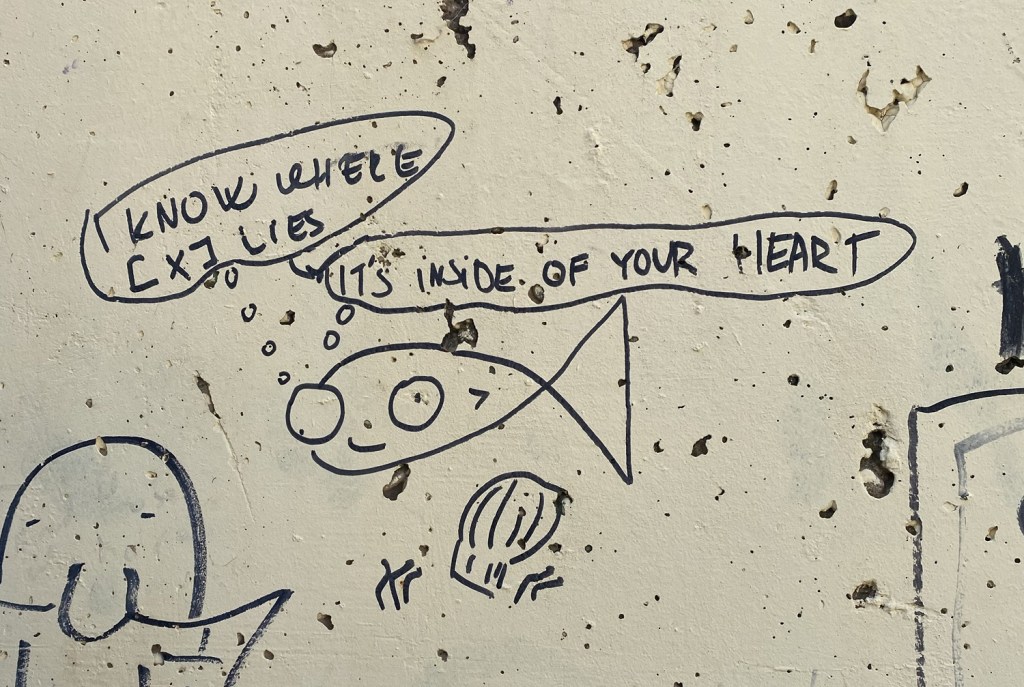 I KNOW WHERE
[X] LIES
IT'S INSIDE OF YOUR HEART